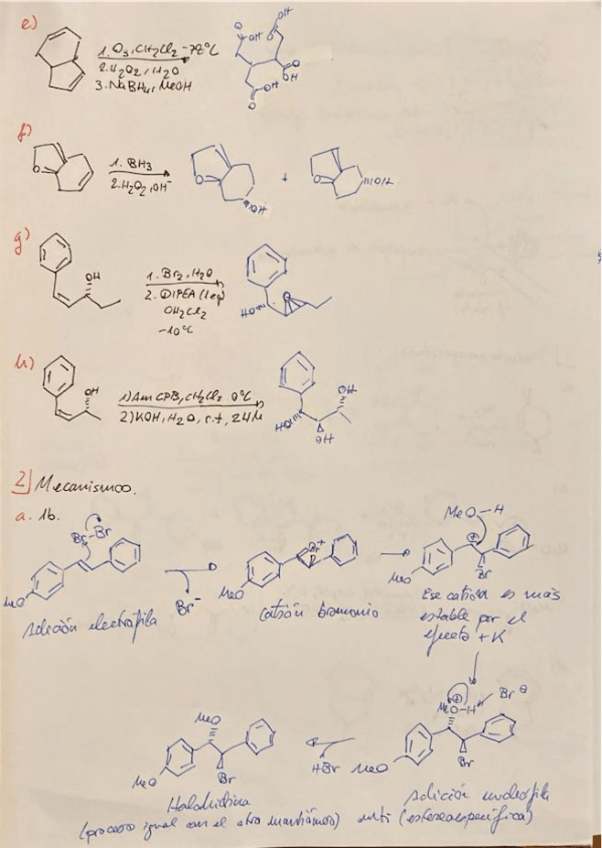 e)
1. O3, CH2Cl2 -78ºC
2. H2O2, H2O
3. NaBH4, MeOH
OH
O
OH
O
O
OH
O
OH
f)
O
1. BH3
2. H2O2, OH-
O
OH
+
O
OH
g)
OH
1. Br2, H2O
2. DIPEA (1 eq)
CH2Cl2
-10ºC
HO
O
h)
OH
1) Am CPB, CH2Cl2 0ºC
2) KOH, H2O, r.t, 24h
HO
OH
OH
2] Mecanismos.
a. 1b.
Br-Br
MeO
Br-
Adición electrófila
Br+
MeO
Catión bromonio
MeO-H
+
MeO
Br
Ese catión es más
estable por el
efecto +K
MeO-H
+
Br⊖
MeO
Br
Adición nucleófila
anti (estereoespecífica)
HBr
MeO
MeO
Br
Halohidrina
(proceso igual con el otro enantiómero)